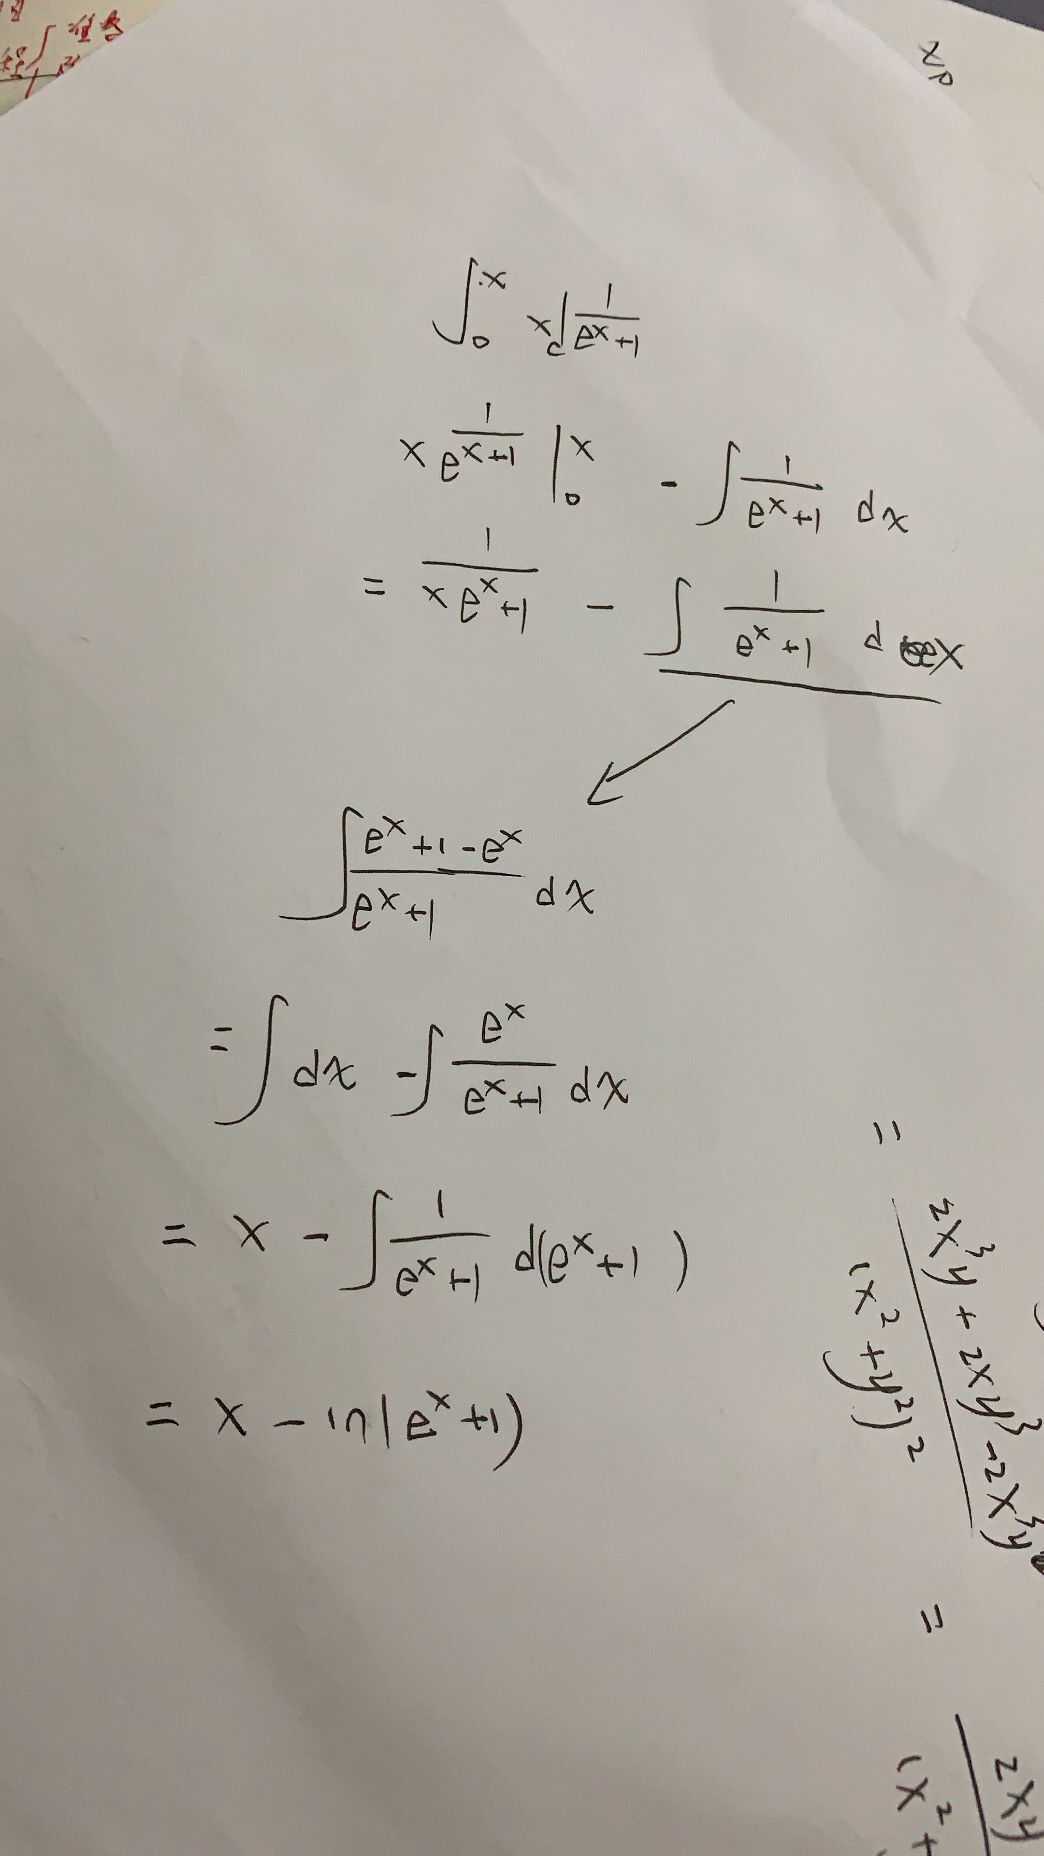 ∫₀ˣ x d 1/(eˣ+1)
x e^(1/(x+1)) |₀ˣ - ∫ 1/(eˣ+1) dx
= 1/(x eˣ+1) - ∫ 1/(eˣ+1) d x
∫ (eˣ+1-eˣ)/(eˣ+1) dx
= ∫ dx - ∫ eˣ/(eˣ+1) dx
= x - ∫ 1/(eˣ+1) d(eˣ+1)
= x - ln(eˣ+1)
= (2x³y + 2xy³ - 2x³y)/(x²+y²)²
= 2xy
(x²+